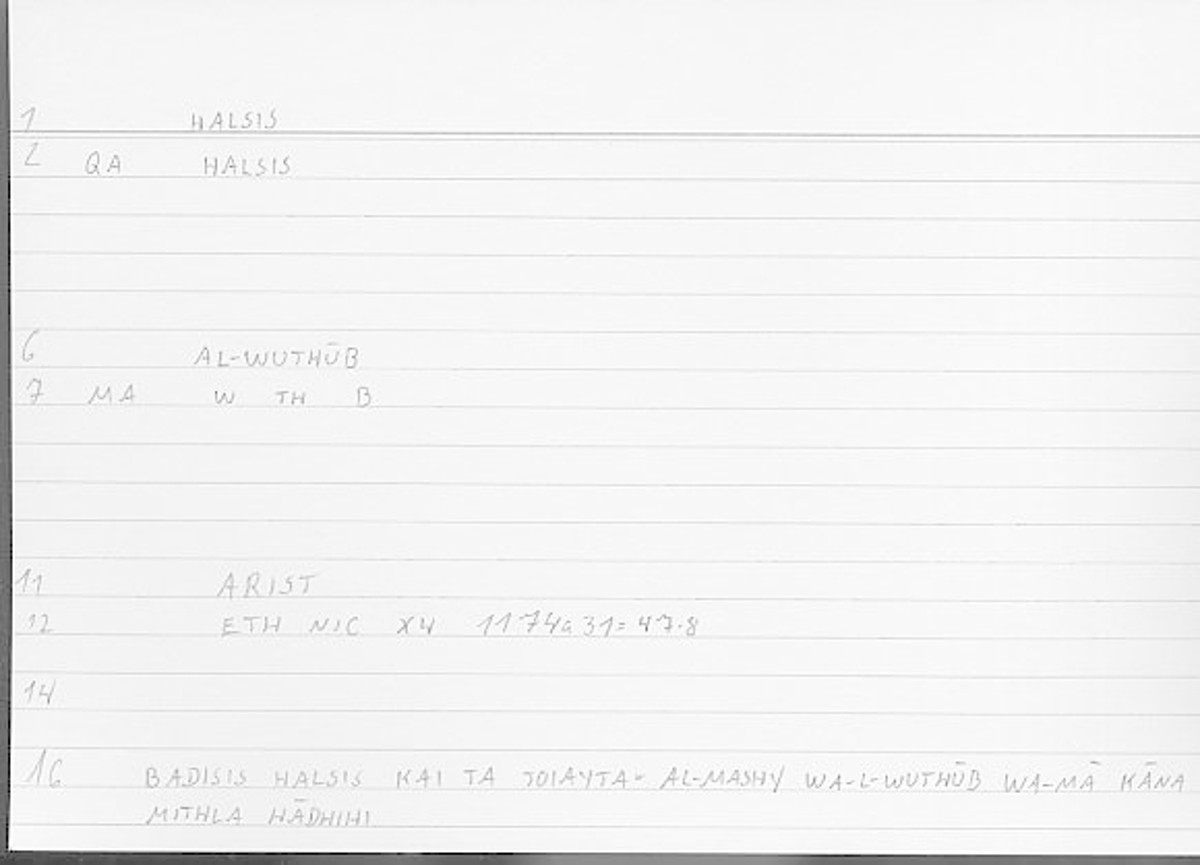 1 HALSIS
2 QA HALSIS
6 AL-WUTHŪB
7 MA W TH B
11 ARIST
12 ETH NIC X4 1174a31=47.8
14
16 BADISIS HALSIS KAI TA TOIAYTA- AL-MASHY WA-L-WUTHŪB WA-MĀ KĀNA
MITHLA HĀDHIHI